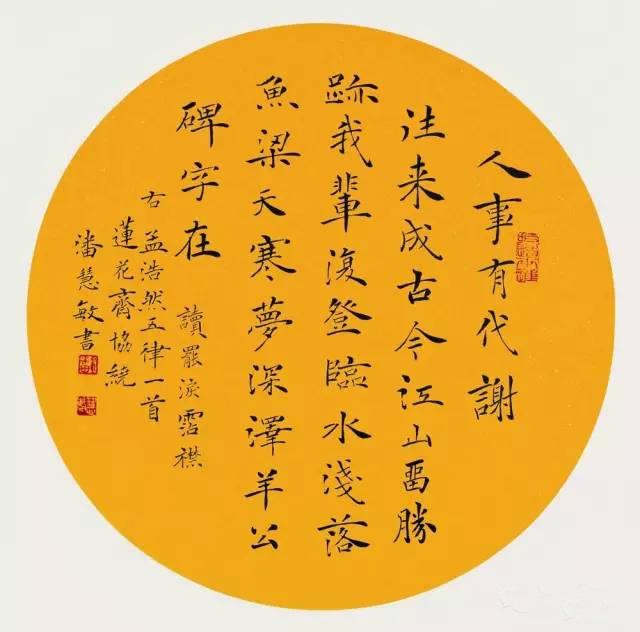 人事有代謝
往来成古今江山留勝
跡我輩復登臨水淺落
魚梁天寒夢深澤羊公
碑字在
讀罷淚霑襟
右孟浩然五律一首
蓮花齊協繞
潘慧敏書